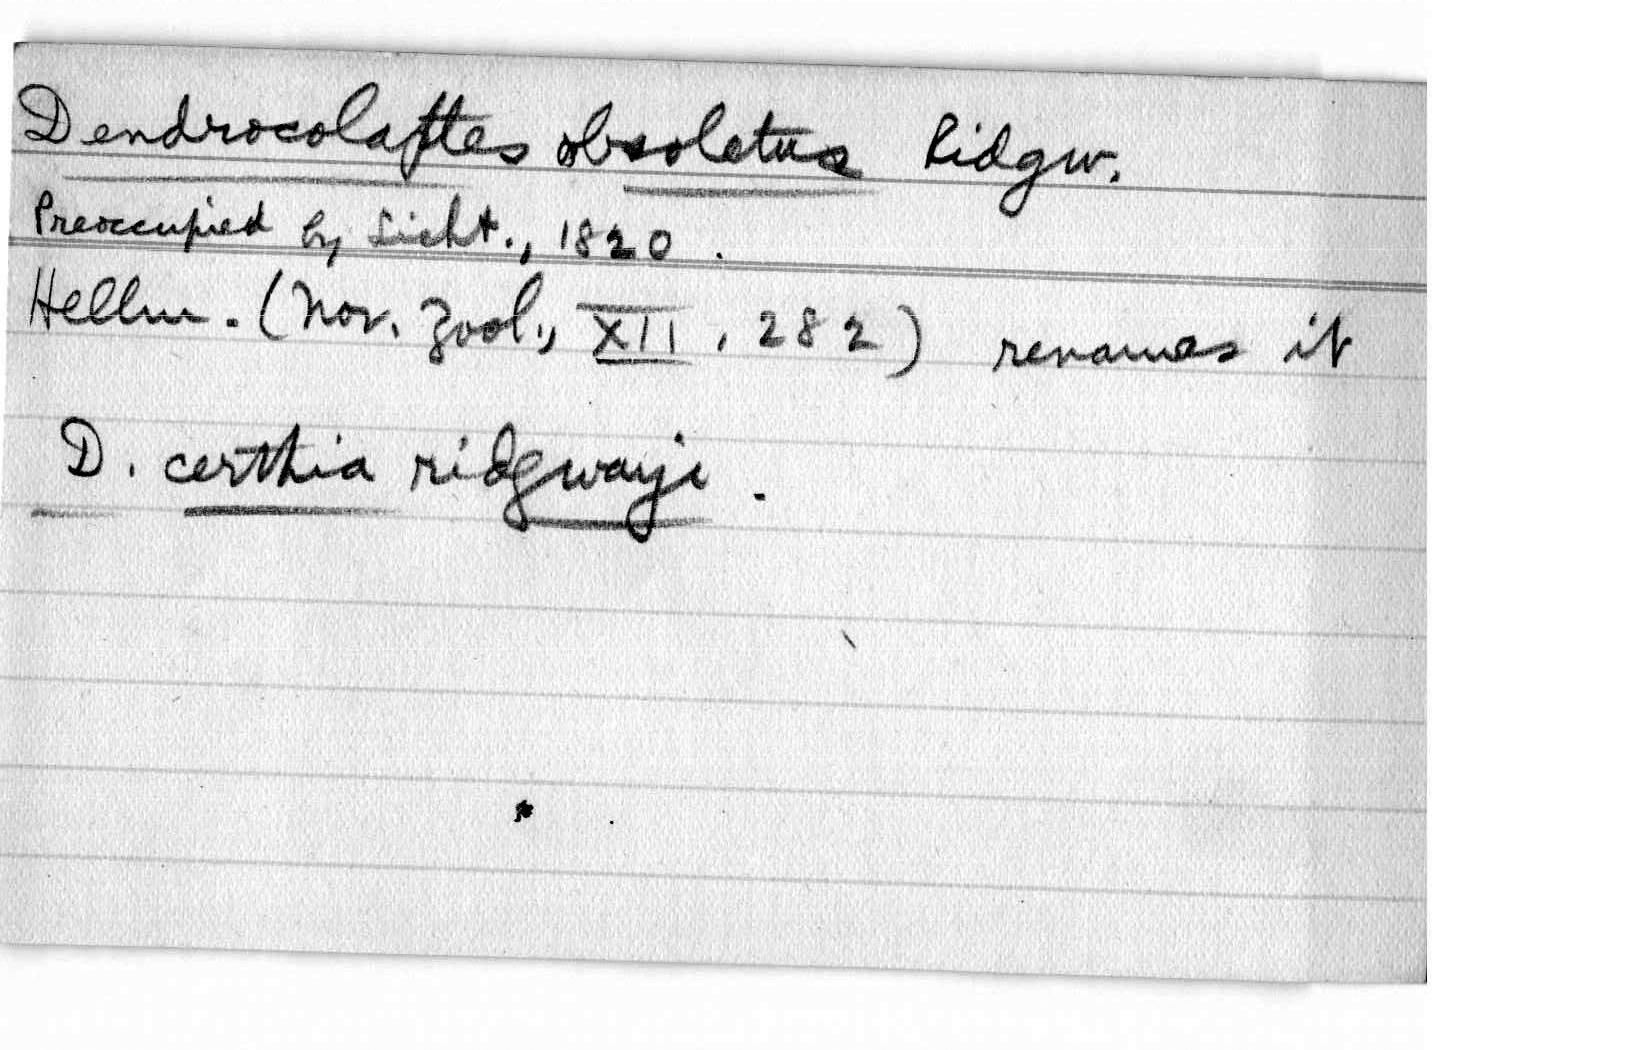 Dendrocolaptes obsoletus Ridgw.
Preoccupied by Licht., 1820.
Hellm. (Nov. Zool., XII, 282) renames it
D. certhia ridgwayi.